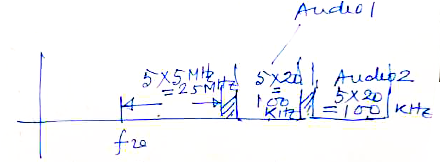 Audio1
5×5MHz
=25MHz
5×20
=
100
KHz
Audio2
5×20
=100
KHz
f20